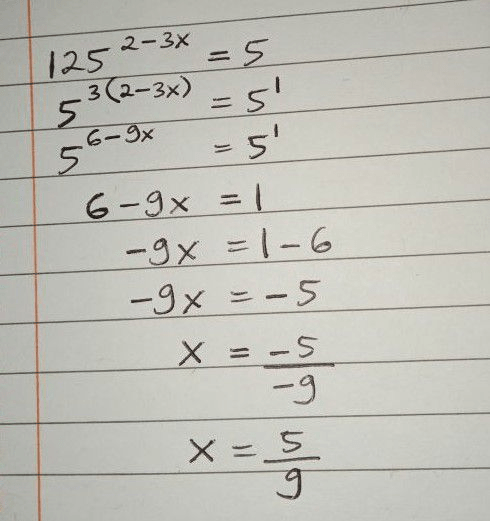 125^(2-3x) = 5
5^(3(2-3x)) = 5^1
5^(6-9x) = 5^1
6-9x = 1
-9x = 1-6
-9x = -5
x = -5/-9
x = 5/9